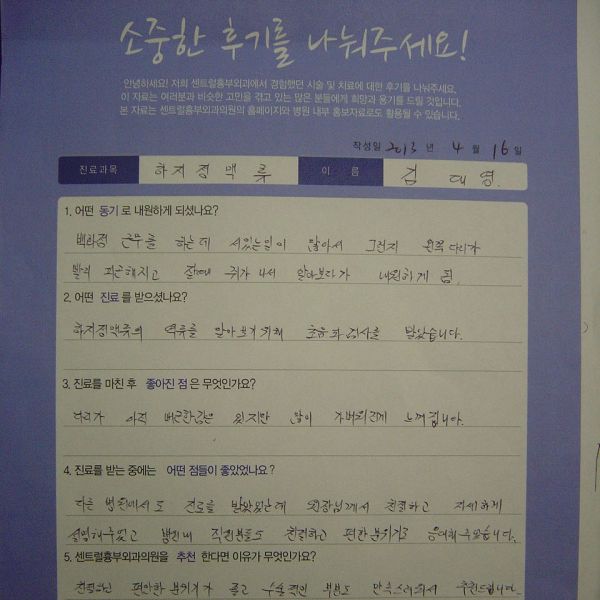 소중한 후기를 나눠주세요!
안녕하세요! 저희 센트럴흉부외과에서 경험했던 시술 및 치료에 대한 후기를 나눠주세요.
이 자료는 여러분과 비슷한 고민을 겪고 있는 많은 분들에게 희망과 용기를 드릴 것입니다.
본 자료는 센트럴흉부외과의원의 홈페이지와 병원 내부 홍보자료로도 활용될 수 있습니다.
작성일 2013 년 4 월 16 일
진료과목 하지정맥류 이 름 김대영
1. 어떤 동기로 내원하게 되셨나요?
백화점 근무를 하는데 서있는일이 많아서 그런지 왼쪽 다리가
빨리 피곤해지고 잘때 쥐가 나서 알아보다가 내원하게 됨.
2. 어떤 진료를 받으셨나요?
하지정맥류의 역류를 알아보기위해 초음파검사를 받았습니다.
3. 진료를 마친 후 좋아진 점은 무엇인가요?
다리가 아직 뻐근한감은 있지만 많이 가벼워진게 느껴집니다.
4. 진료를 받는 중에는 어떤 점들이 좋았었나요?
다른 병원에서도 진료를 받았었는데 원장님께서 친절하고 자세하게
설명해주었고 병원내 직원분들도 친절하고 편한분위기로 응대해주었습니다.
5. 센트럴흉부외과의원을 추천 한다면 이유가 무엇인가요?
친절하고 편안한 분위기가 좋고 수술적인 부분도 만족스러워서 추천드립니다.